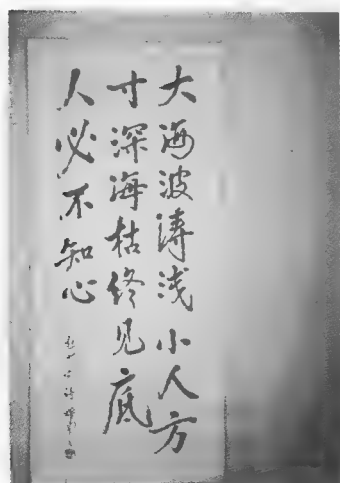 大海波涛浅小人方
寸深海枯终见底
人必不知心